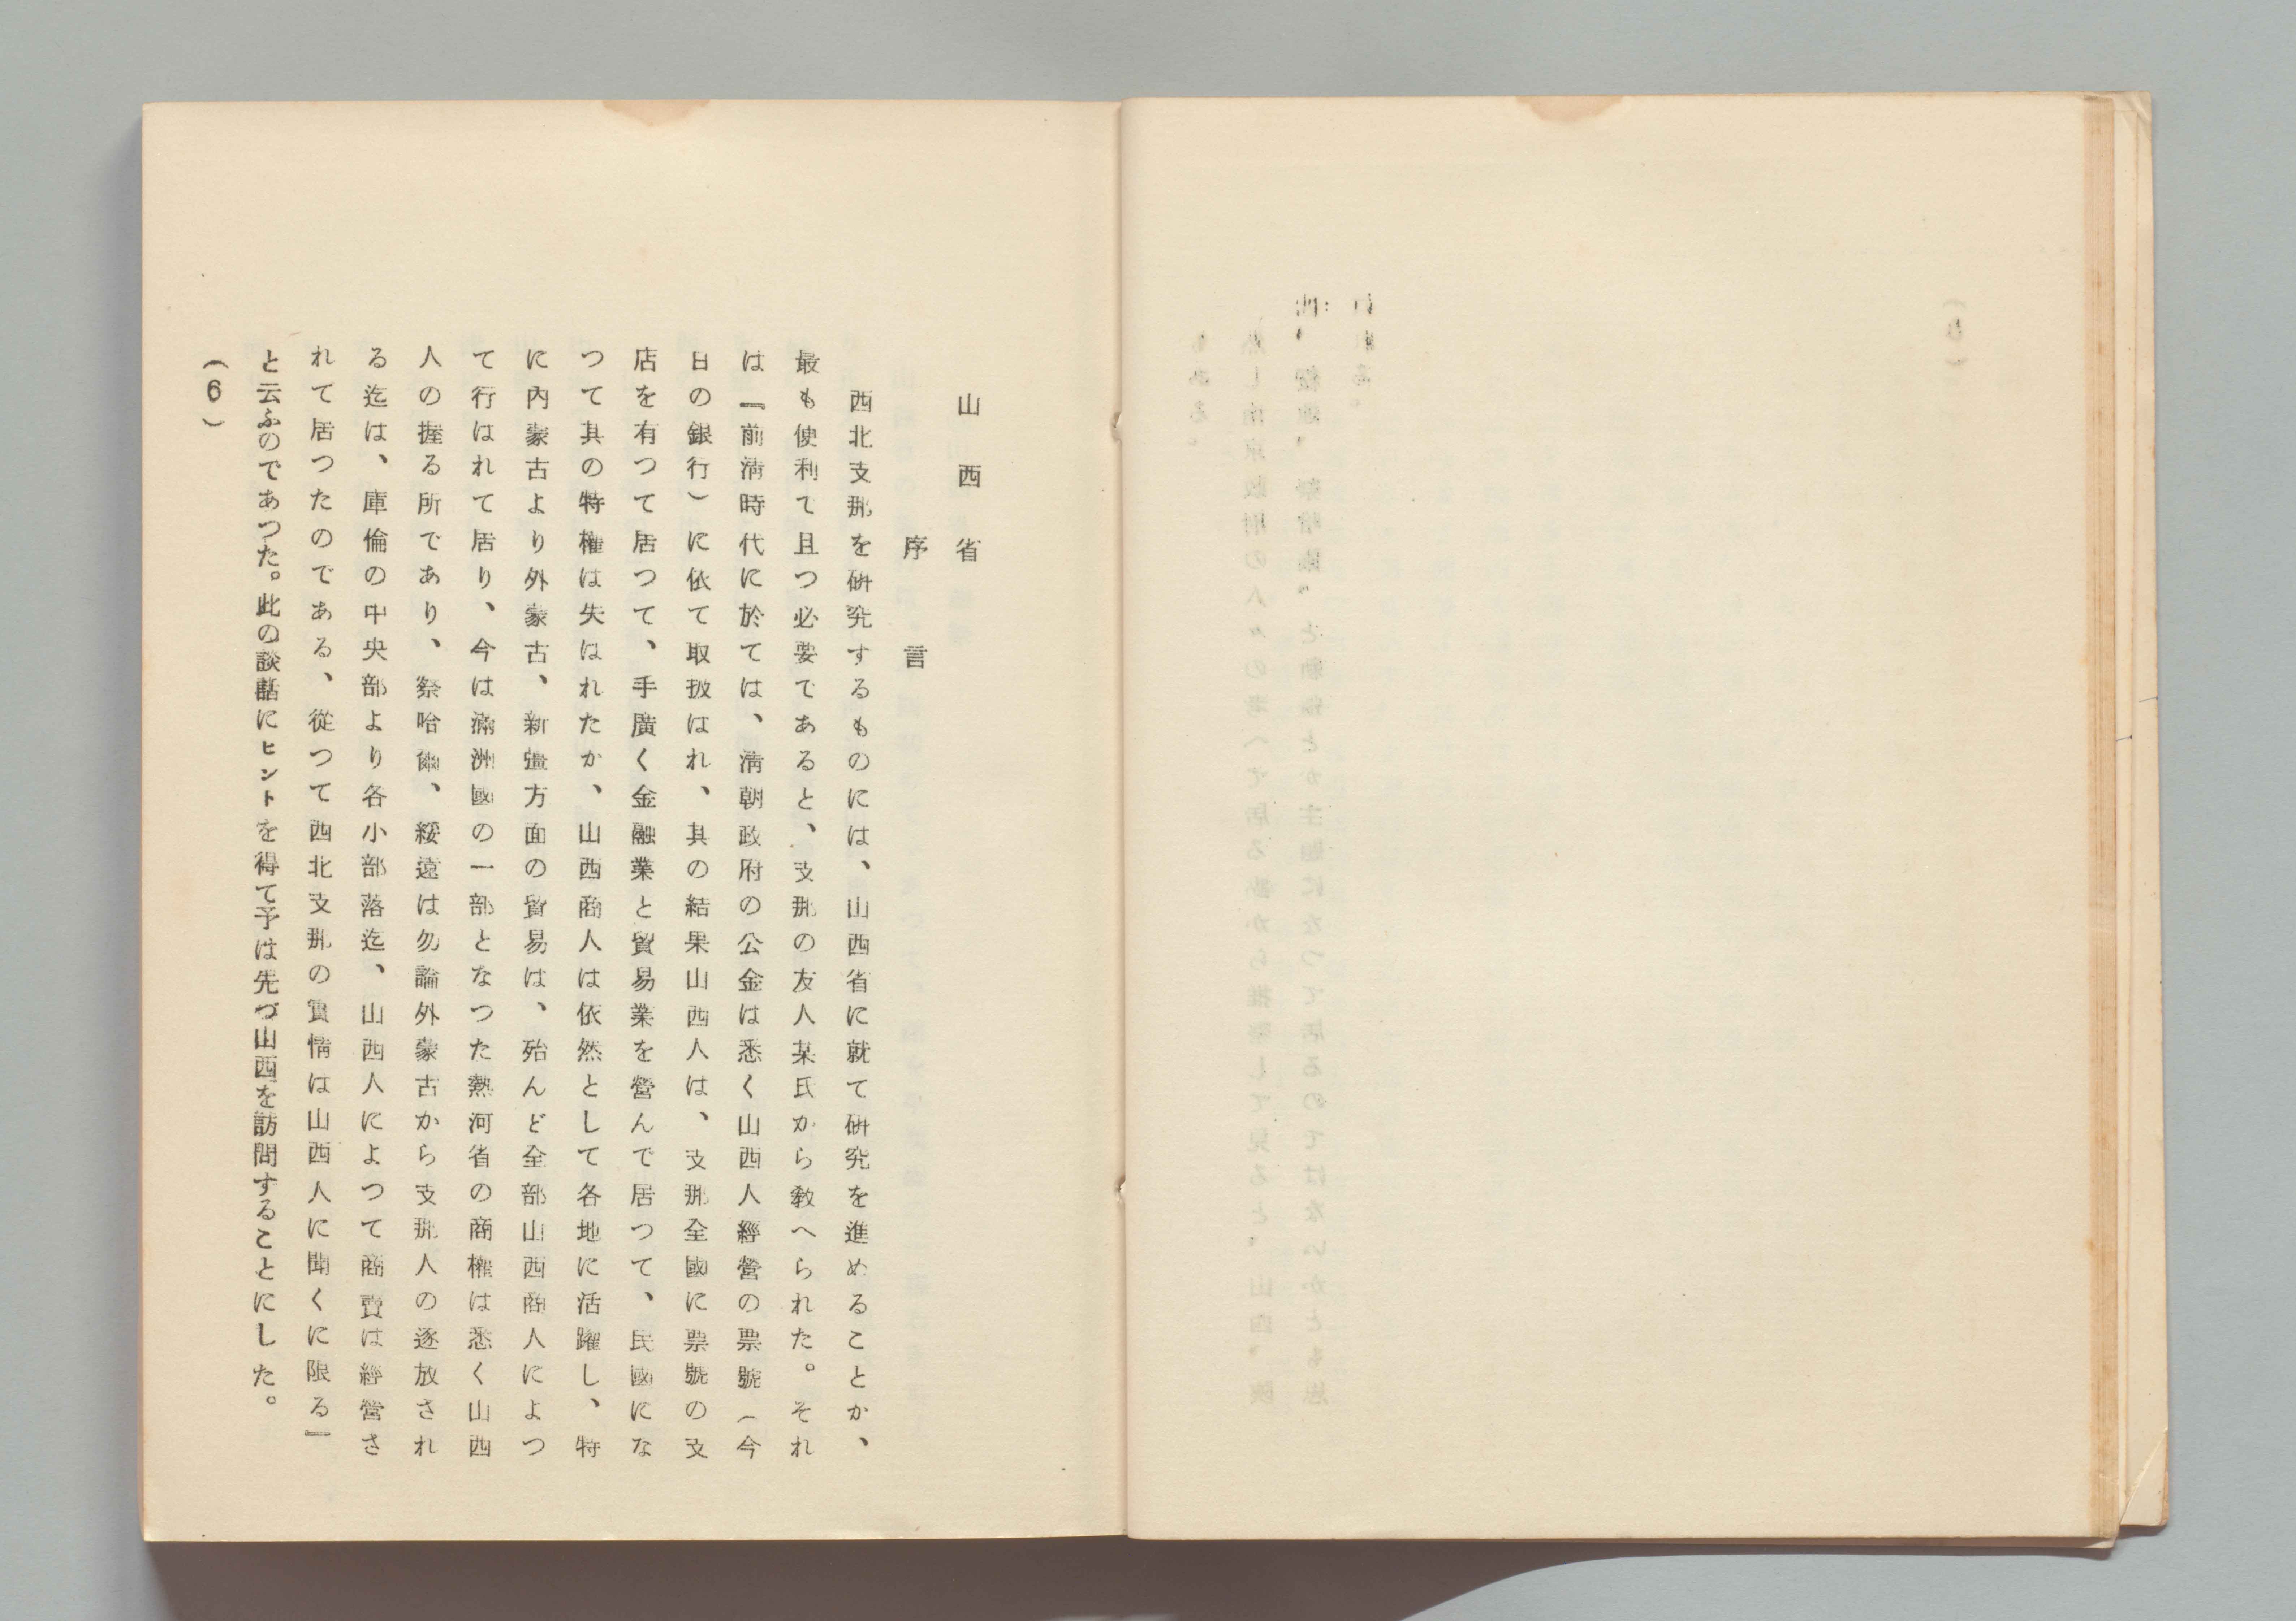 山西省
序言
西北支那を研究するものには、山西省に就て研究を進めることか、
最も便利て且つ必要であると、支那の友人某氏から敎へられた。それ
は『前淸時代に於ては、淸朝政府の公金は悉く山西人經營の票號（今
日の銀行）に依て取扱はれ、其の結果山西人は、支那全國に票號の支
店を有つて居つて、手廣く金融業と貿易業を營んで居つて、民國にな
つて其の特權は失はれたか、山西商人は依然として各地に活躍し、特
に內蒙古より外蒙古、新疆方面の貿易は、殆んど全部山西商人によつ
て行はれて居り、今は滿洲國の一部となつた熱河省の商權は悉く山西
人の握る所であり、察哈爾、綏遠は勿論外蒙古から支那人の逐放され
る迄は、庫倫の中央部より各小部落迄、山西人によつて商賣は經營さ
れて居つたのである、從つて西北支那の實情は山西人に聞くに限る』
と云ふのであつた。此の談話にヒントを得て予は先づ山西を訪問することにした。
（6）